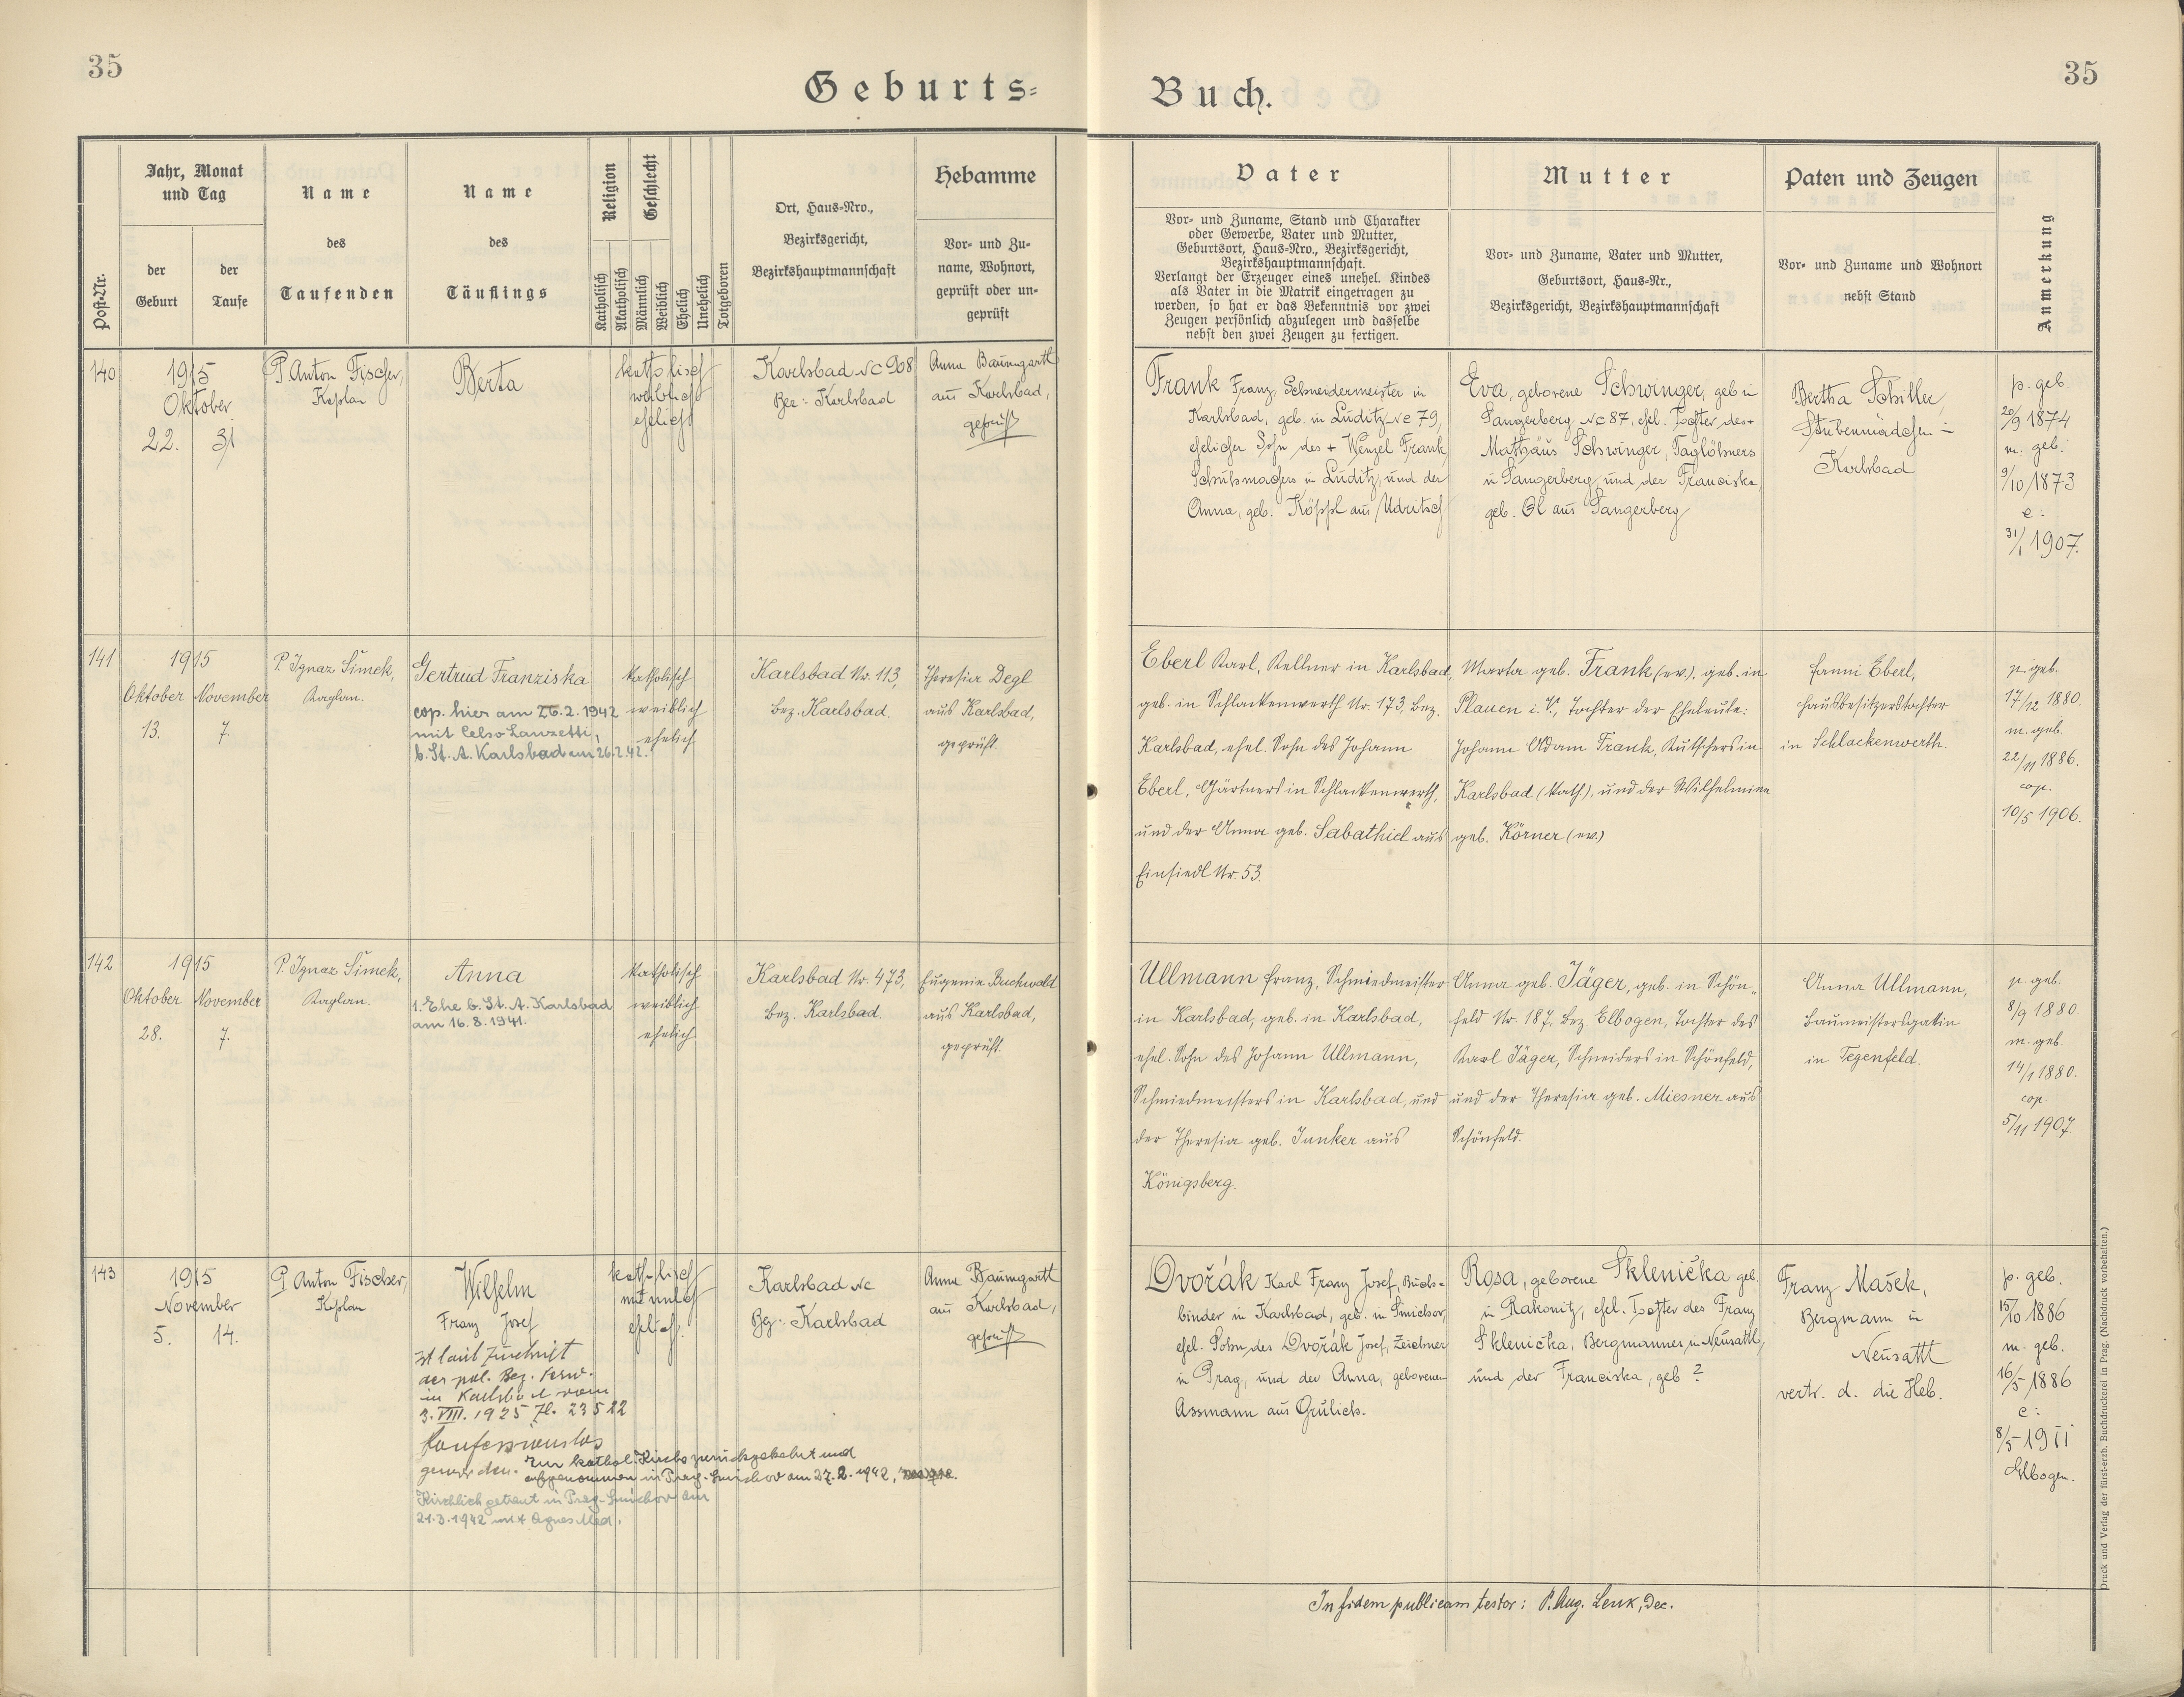 35
Geburts=
Jahr, Monat
und Tag
Name
Name
Religion
Geschlecht
Ort, Haus=Nro.,
Bezirksgericht,
Bezirkshauptmannschaft
Hebamme
Post=Nr.
der
Geburt
der
Taufe
des
Taufenden
des
Täuflings
Katholisch
Akatholisch
Männlich
Weiblich
Ehelich
Unehelich
Totgeboren
Vor= und Zu=
name, Wohnort,
geprüft oder un=
geprüft
140
1915
Oktober
22. 31
P. Anton Fischer,
Kaplan
Berta
katholisch
weiblich
ehelich
Karlsbad Nc 908
Bez: Karlsbad
Anna Baumgartl
aus Karlsbad,
geprüft
141
1915
Oktober November
13. 7.
P. Ignaz Šimek,
Kaplan.
Gertrud Franziska
cop. hier am 26.2.1942
mit Celso Lanzetti,
b. St. A. Karlsbad am 26.2.42.
katholisch
weiblich
ehelich
Karlsbad Nr. 113,
Bez. Karlsbad.
Theresia Degl
aus Karlsbad,
geprüft.
142
1915
Oktober November
28. 7.
P. Ignaz Šimek,
Kaplan.
Anna
1. Ehe b. St. A. Karlsbad
am 16.8.1941.
katholisch
weiblich
ehelich
Karlsbad Nr. 473,
Bez. Karlsbad.
Eugenie Buchwald
aus Karlsbad,
geprüft.
143
1915
November
5. 14.
P. Anton Fischer,
Kaplan
Wilhelm
Franz Josef
ist laut Zuschrift
der pol. Bez. Verw.
in Karlsbad vom
3. VIII. 1925 Zl. 23522
konfessionslos
geworden. Zur kathol. Kirche zurückgekehrt und
aufgenommen in Prag-Smichov am 27.2.1942,
Kirchlich getraut in Prag-Smichov am
21.3.1942 mit Agnes Med.
katholisch
männlich
ehelich.
Karlsbad Nc
Bez: Karlsbad
Anna Baumgartl
aus Karlsbad,
geprüft
35
Buch.
Vater
Vor= und Zuname, Stand und Charakter
oder Gewerbe, Vater und Mutter,
Geburtsort, Haus=Nro., Bezirksgericht,
Bezirkshauptmannschaft.
Verlangt der Erzeuger eines unehel. Kindes
als Vater in die Matrik eingetragen zu
werden, so hat er das Bekenntnis vor zwei
Zeugen persönlich abzulegen und dasselbe
nebst den zwei Zeugen zu fertigen.
Mutter
Vor= und Zuname, Vater und Mutter,
Geburtsort, Haus=Nr.,
Bezirksgericht, Bezirkshauptmannschaft
Paten und Zeugen
Vor= und Zuname und Wohnort
nebst Stand
Anmerkung
Frank Franz, Schneidermeister in
Karlsbad, geb. in Luditz Nc 79,
ehelicher Sohn des + Wenzel Frank,
Schuhmachers in Luditz, und der
Anna, geb. Köppl aus Udritsch
Eva, geborene Schwinger, geb in
Sangerberg Nc 87, ehel. Tochter des +
Mathäus Schwinger, Taglöhners
in Sangerberg, und der Franciska,
geb. Öl aus Sangerberg
Bertha Schiller,
Stubenmädchen in
Karlsbad
p. geb.
20/9 1874
m. geb.
9/10 1873
c:
31/1 1907.
Eberl Karl, Kellner in Karlsbad,
geb. in Schlackenwerth Nr. 173, Bez.
Karlsbad, ehel. Sohn des Johann
Eberl, Gärtners in Schlackenwerth,
und der Anna geb. Sabathiel aus
Einsiedl Nr. 53.
Marta geb. Frank (ev.), geb. in
Plauen i. V., Tochter der Eheleute:
Johann Adam Frank, Kutschers in
Karlsbad (kath), und der Wilhelmine
geb. Körner (ev.)
Fanni Eberl,
Hausbesitzerstochter
in Schlackenwerth.
p. geb.
17/12 1880.
m. geb.
22/11 1886.
cop.
10/5 1906.
Ullmann Franz, Schmiedmeister
in Karlsbad, geb. in Karlsbad,
ehel. Sohn des Johann Ullmann,
Schmiedmeisters in Karlsbad, und
der Theresia geb. Junker aus
Königsberg.
Anna geb. Jäger, geb. in Schön„
feld Nr. 187, Bez. Elbogen, Tochter des
Karl Jäger, Schneiders in Schönfeld,
und der Theresia geb. Miesner aus
Schönfeld.
Anna Ullmann,
Baumeistersgattin
in Tegenfeld.
p. geb.
8/9 1880.
m. geb.
14/1 1880.
cop.
5/11 1907
Dvořák Karl Franz Josef, Buch=
binder in Karlsbad, geb. in Smichov,
ehel. Sohn des Dvořák Josef, Zeichner
in Prag, und der Anna, geborenen
Assmann aus Grulich.
Rosa, geborene Sklenička geb.
in Rakonitz, ehel. Tochter des Franz
Sklenička, Bergmannes in Neusattl,
und der Franciska, geb ?
Franz Mašek,
Bergmann in
Neusattl
vertr. d. die Heb.
p. geb.
15/10 1886
m. geb.
16/5 1886
c:
8/5 1911
Elbogen.
In fidem publicam testor: P. Aug. Lenk, Dec.
Druck und Verlag der fürst-erzb. Buchdruckerei in Prag. (Nachdruck vorbehalten.)